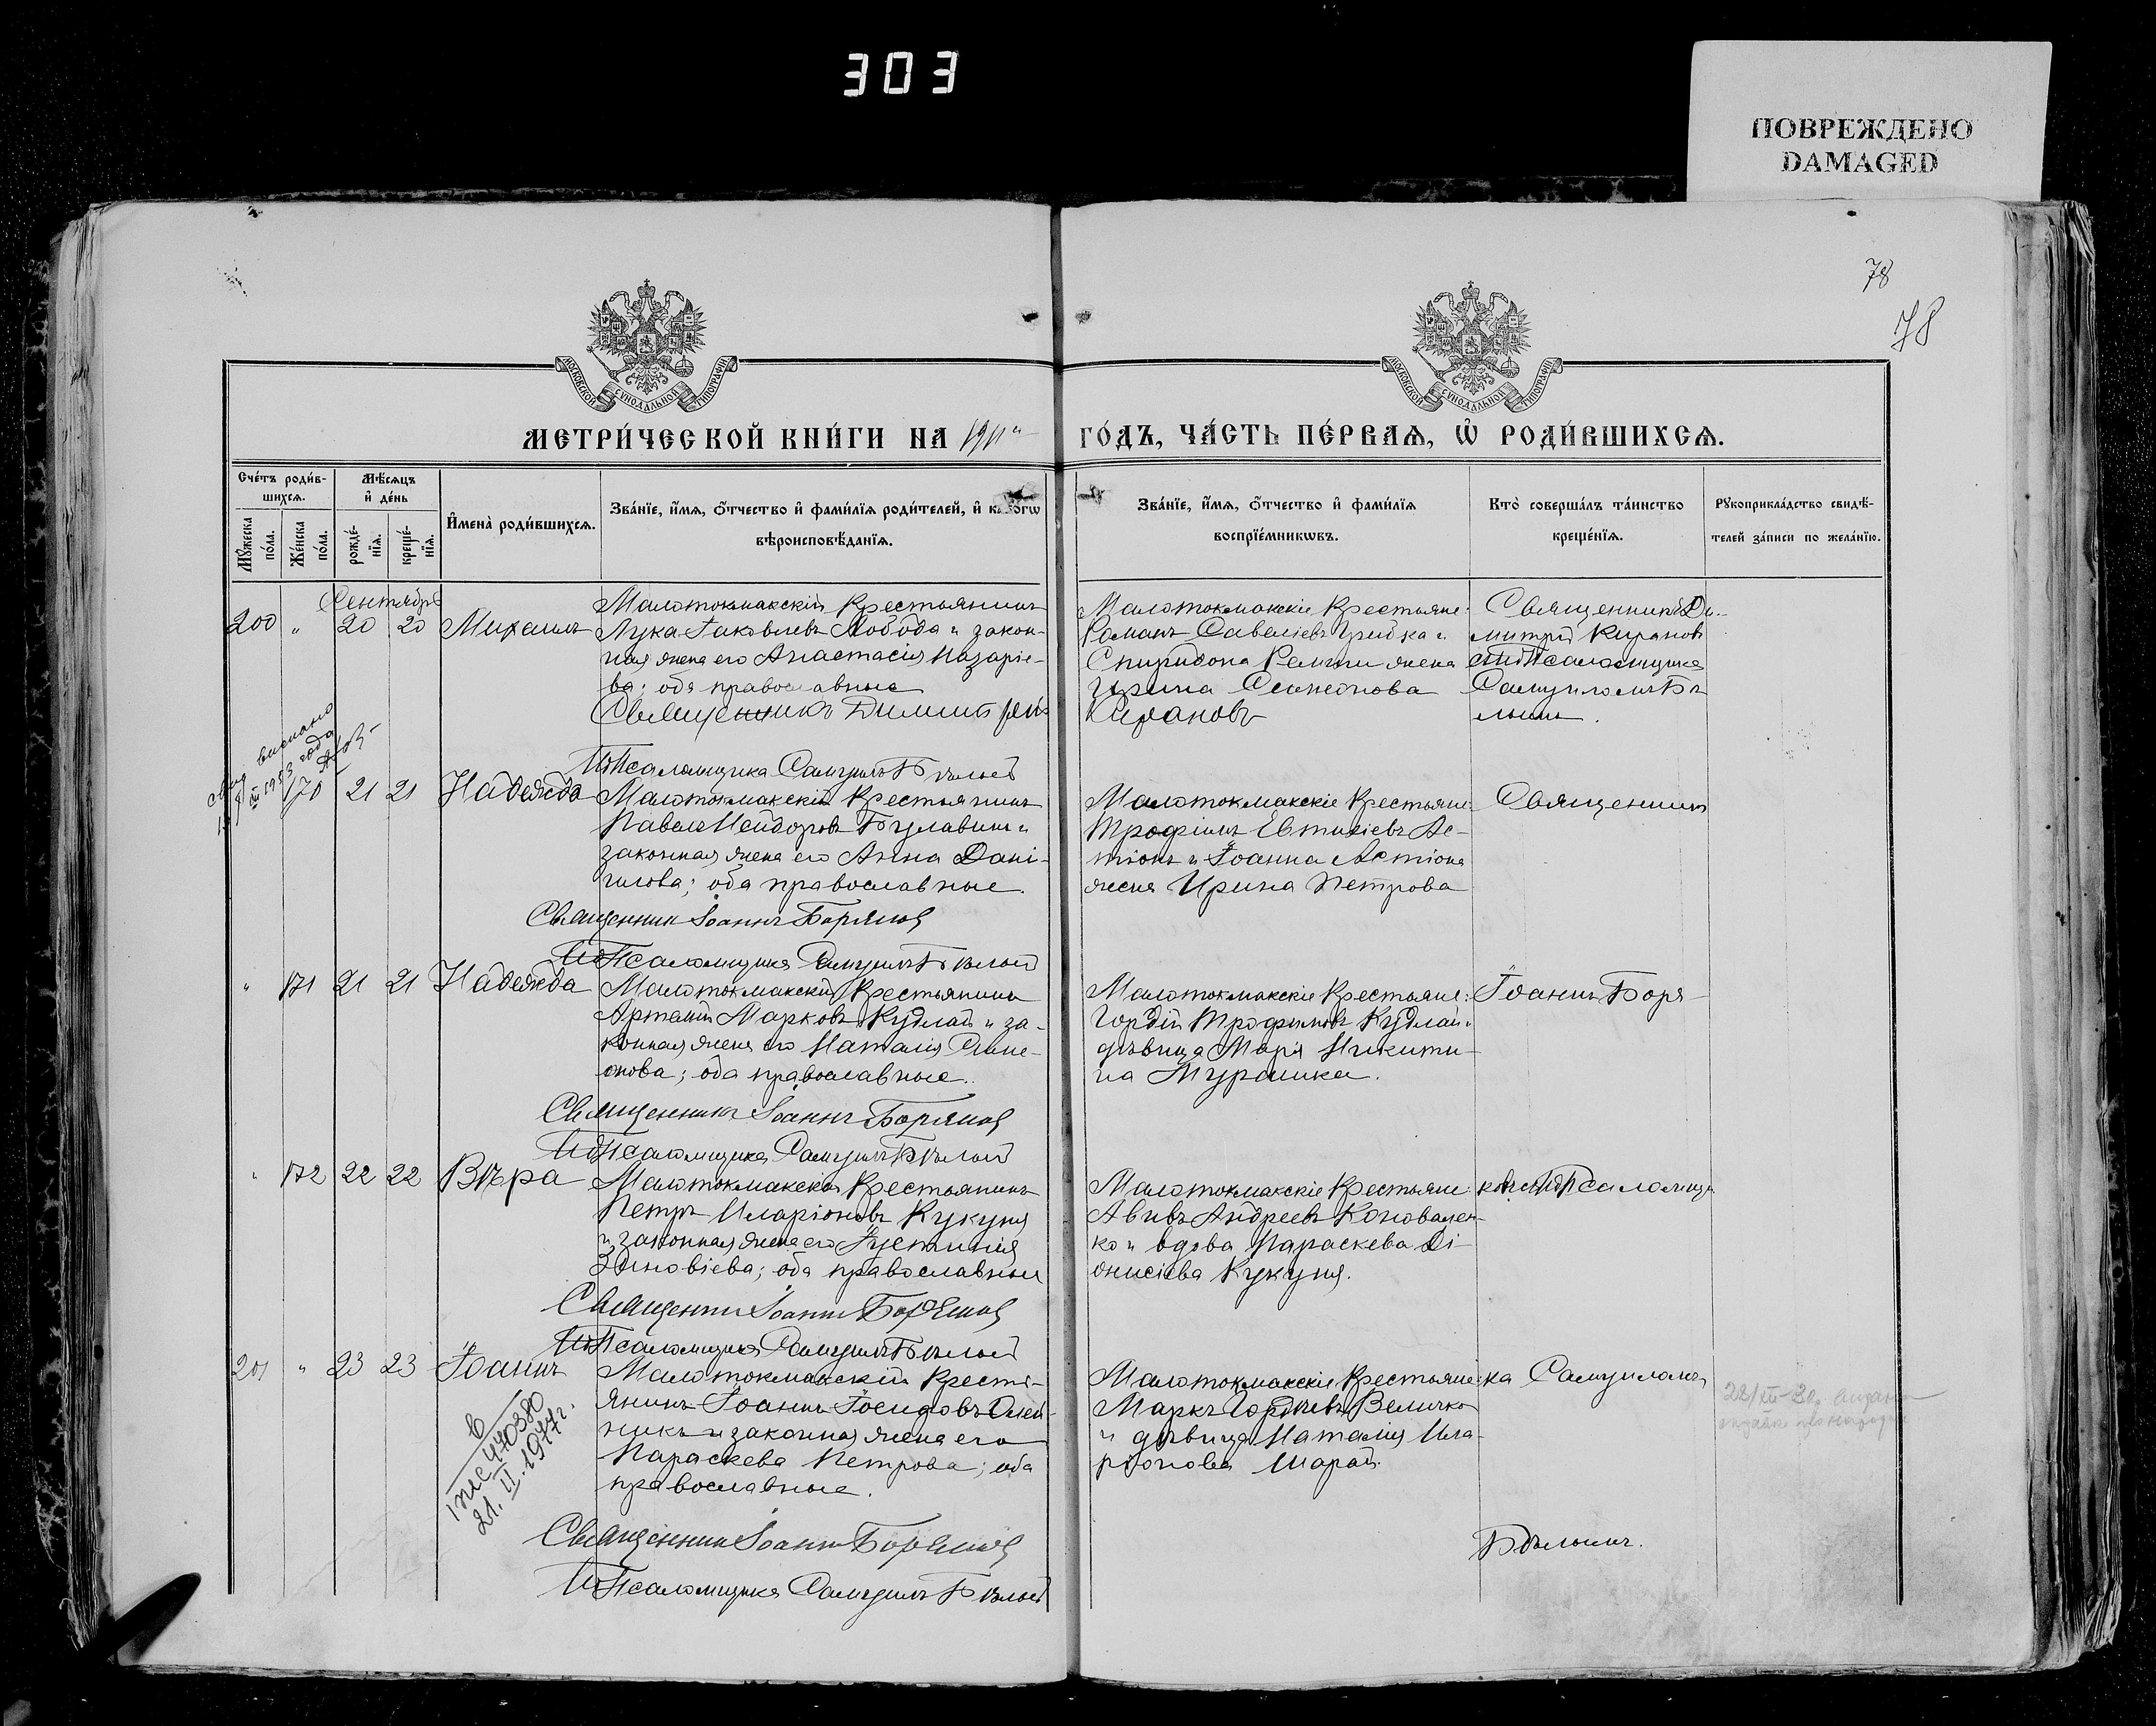 303
ПОВРЕЖДЕНО
DAMAGED
78
78
МОСКОВСКОЙ СУНОДАЛЬНОЙ ТИПОГРАФІИ
МОСКОВСКОЙ СУНОДАЛЬНОЙ ТИПОГРАФІИ
МЕТРИ́ЧЕСКОЙ КНИ́ГИ НА 1911й
ГО́ДЪ, ЧА́СТЬ ПЕ́РВАѦ, Ѿ РОДИ́ВШИХСѦ.
Сче́тъ роди́в-
шихсѧ.
Мѣ́сѧцъ
и҆ де́нь
Мꙋ́жеска по́ла.
Же́нска по́ла.
рожде́-нїѧ.
креще́-нїѧ.
И҆мена̀ роди́вшихсѧ.
Зва́нїе, и҆́мѧ, ѻ҆́тчество и҆ фами́лїѧ роди́телей, и҆ како́гѡ
вѣроисповѣ́данїѧ.
Зва́нїе, и҆́мѧ, ѻ҆́тчество и҆ фами́лїѧ
воспрїе́мникѡвъ.
Кто̀ соверша́лъ та́инство
креще́нїѧ.
Рꙋкоприкла́дство свидѣ́-
телей за́писи по жела́нїю.
Сентября
200 " 20 20 Михаилъ
Малотокмакскій Крестьянинъ
Лука Іаковлевъ Лобода и закон-
ная жена его Анастасія Назаріе-
ва; оба православные
Священникъ Димитрій
Кирановъ
ИдПсаломщика Самуилъ Бѣлый
Малотокмакскіе Крестьяне:
Романъ Савеліевъ Грибка и
Спиридона жена
Ирина Симеонова
Священникъ Ди-
митрій Кирановъ
съ ИдПсаломщика
Самуиломъ Бѣ-
лымъ.
1953 года
170 21 21 Надежда
Малотокмакскій Крестьянинъ
Павелъ Исидоровъ Булавинъ и
законная жена его Анна Дані-
илова; оба православные.
Священникъ Іоаннъ Боряковъ
ИдПсаломщика Самуилъ Бѣлый
Малотокмакскіе Крестьяне:
Трофимъ Евтихіевъ Ак-
тіонъ и Іоанна Актіона
жена Ирина Петрова
Священникъ
" 171 21 21 Надежда
Малотокмакскій Крестьянинъ
Артемій Марковъ Кудлай и за-
конная жена его Наталія Симе-
онова; оба православные.
Священникъ Іоаннъ Боряковъ
ИдПсаломщика Самуилъ Бѣлый
Малотокмакскіе Крестьяне:
Гордій Трофимовъ Кудлай и
дѣвица Марія Никити-
на
Іоаннъ Боря-
" 172 22 22 Вѣра
Малотокмакскій Крестьянинъ
Петръ Иларіоновъ Кукуня
и законная жена его Іустинія
Зиновіева; оба православные
Священникъ Іоаннъ Боряковъ
ИдПсаломщика Самуилъ Бѣлый
Малотокмакскіе Крестьяне:
Авивъ Андреевъ Коновален-
ко и вдова Параскева Ді-
онисіева Кукуня.
ковъ съ ИдПсаломщи-
201 " 23 23 Іоаннъ
Малотокмакскій Кресть-
янинъ Іоаннъ Іосифовъ Олей-
никъ и законная жена его
Параскева Петрова; оба
православные.
Священникъ Іоаннъ Боряковъ
ИдПсаломщика Самуилъ Бѣлый
Малотокмакскіе Крестьяне:
Маркъ Гордіевъ Величко
и дѣвица Наталія Ила-
ріонова Шарай.
ка Самуиломъ
Бѣлымъ.
440380
21.II.1977г.